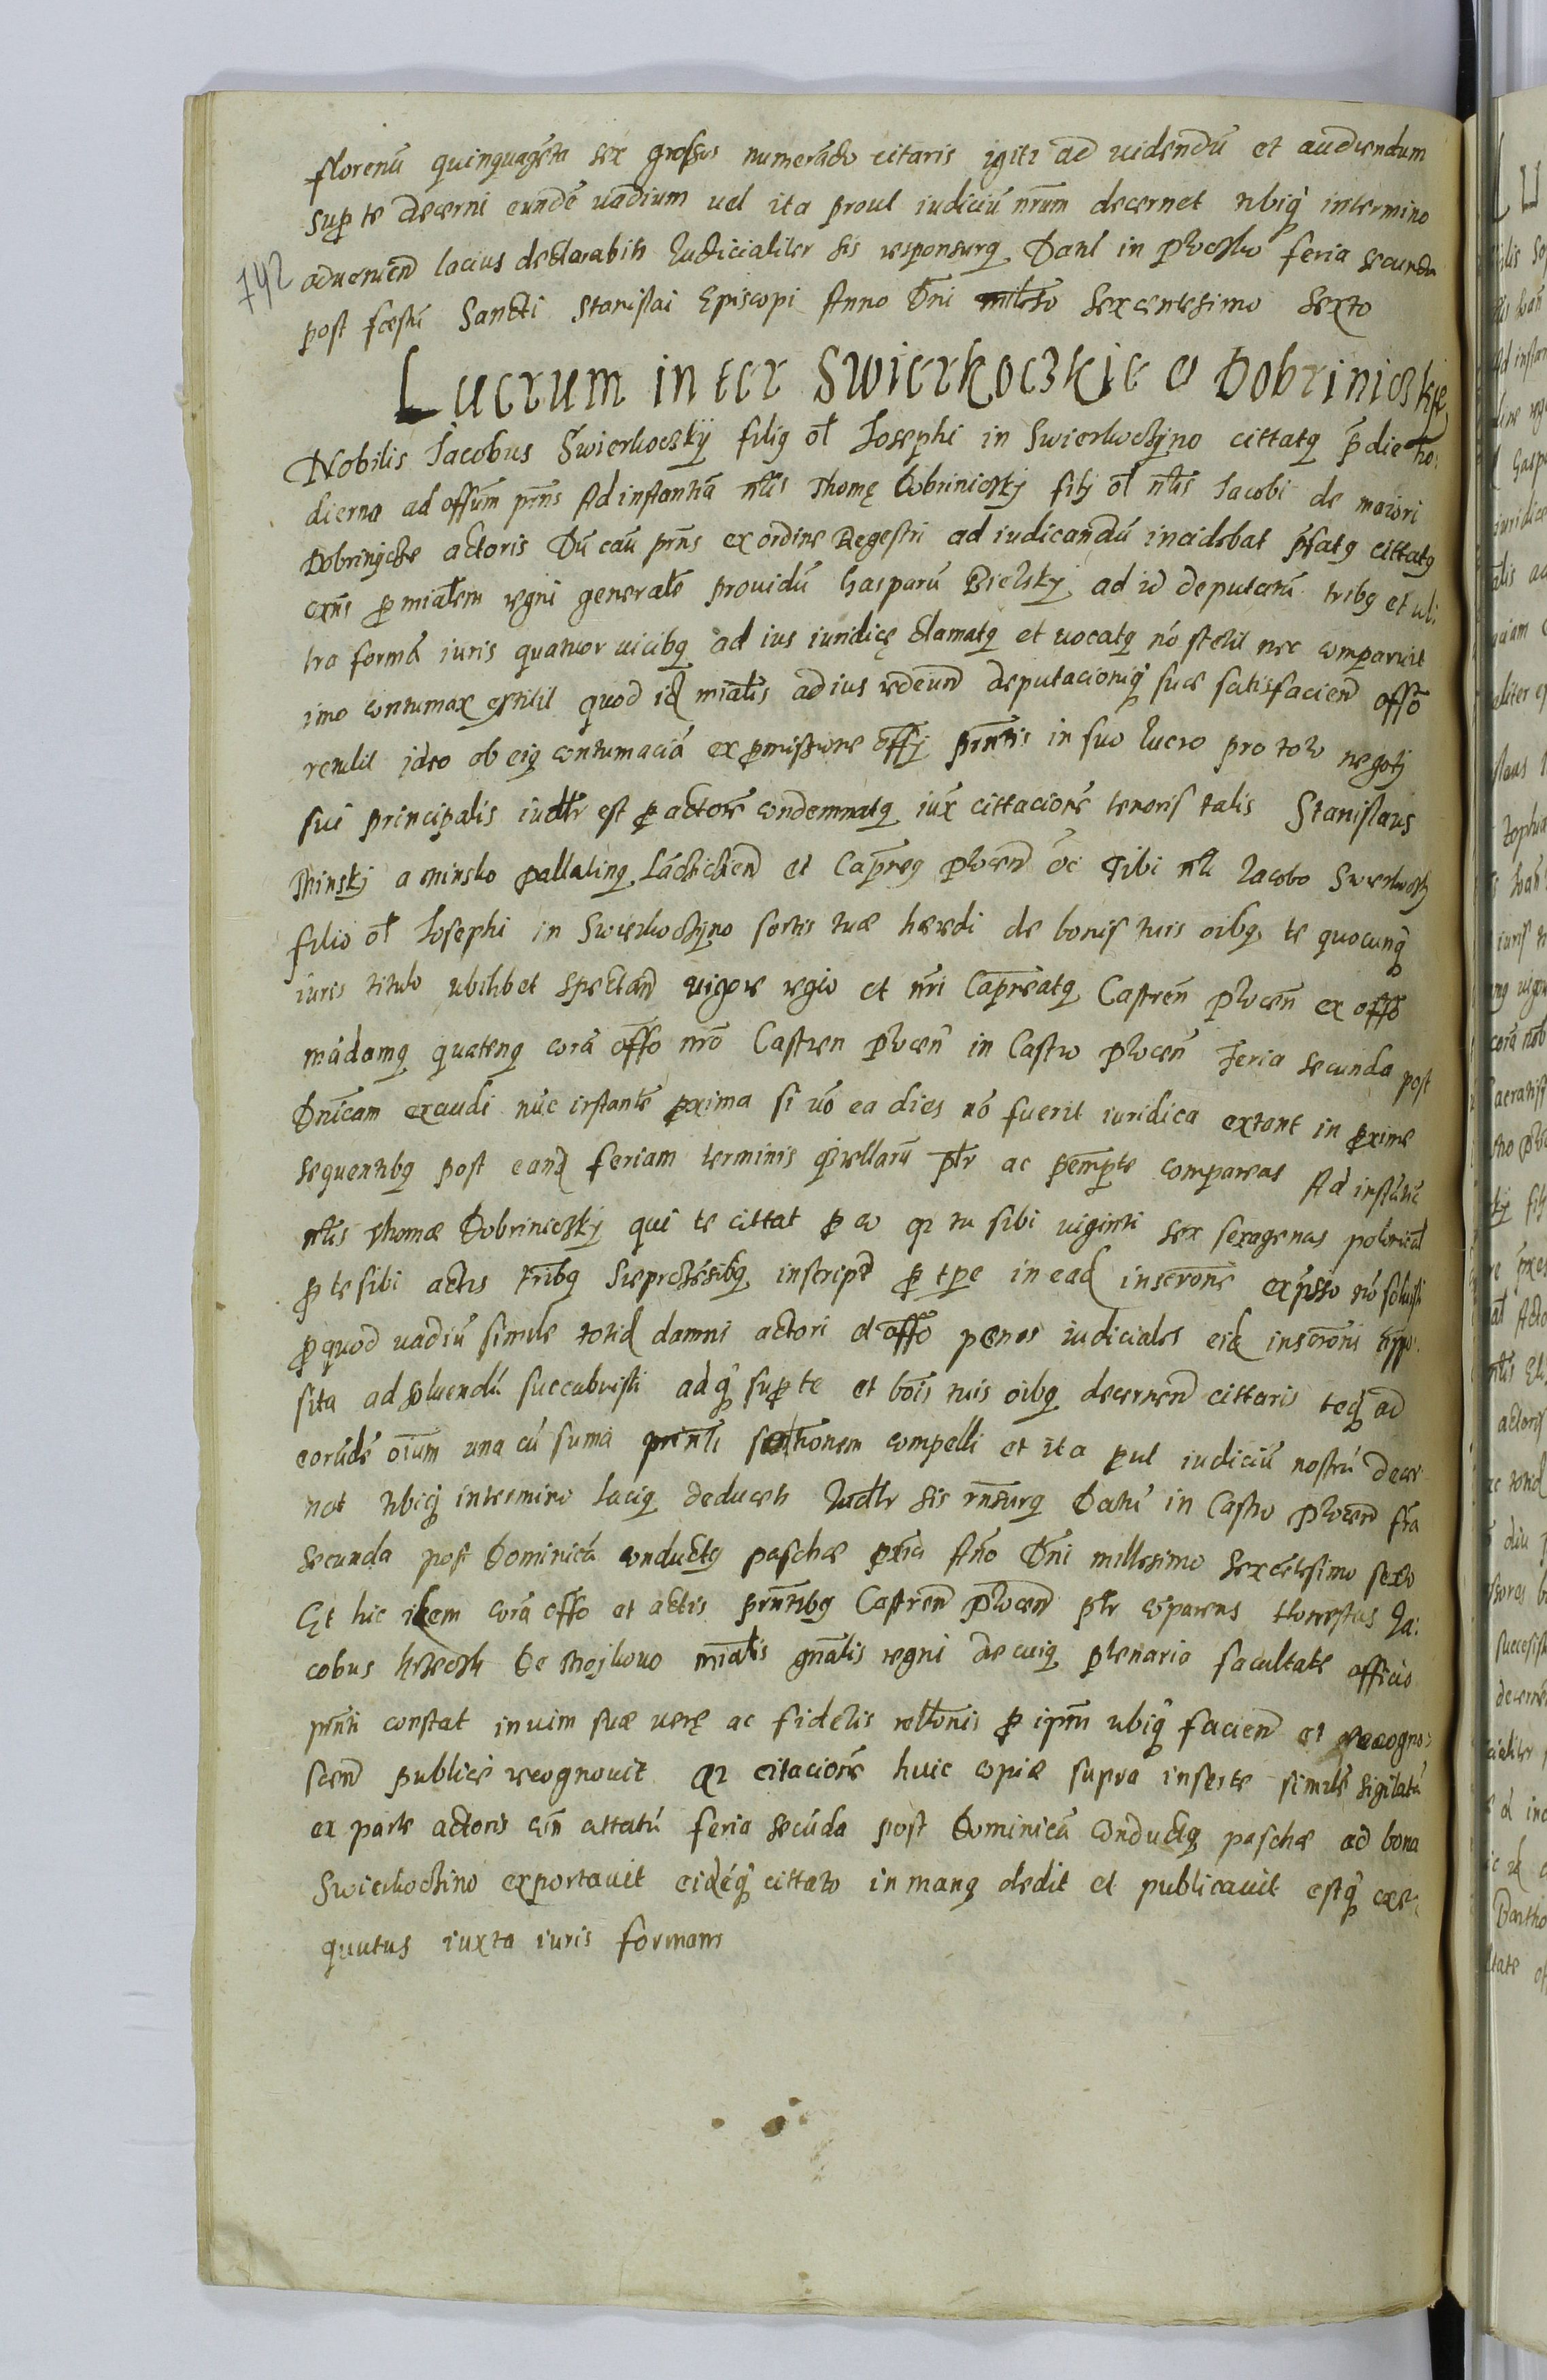 florenũ quinquagẽta sex grossos numerãdo citaris igitr ad uidendũ et audiendum
sup te decerni eundẽ uadium uel ita prout iudiciũ nrum decernet ubiq intermino
742
aduenien lacius declarabit Judicialiter sis responsurq Dant in Plocsko feria secunda
post festũ Sancti Stanislai Episcopi Anno Dni millesto sexcentesimo sexto
Lucrum inter Swierkoczkie et Dobriniczkie
Nobilis Jacobus Swierkoczkij filiq ol Josephi in Swierkoczyno cittatq p die ho:
dierna ad offum prñs Ad instantiã nlis Thomę Dobriniczkij filij ol nlis Jacobi de maiori
Dobrinijcze actoris Dũ cau prñs ex ordine Regestri ad iudicandũ incidebat pfatq cittatq
exñs p mialem regni generalẽ prouidũ Gasparũ Bielskij ad id deputatũ tribq et ul:
tra formã iuris quatuor uicibq ad ius iuridicę clamatq et uocatq nõ stetit nec comparuit
imo contumax exstitit quod id mialis ad ius redeund deputacioniq suae satisfacien offo
retulit ideo ob eiq contumaciã ex pmissione offij prñtis in suo lucro pro toto negotij
sui principalis iudtr est p actorẽ condemnatq iux cittacionẽ tenoris talis Stanislaus
Minskij a Minsko Pallatinq Lãcicien et Capneq Plocen et Tibi nli Jacobo Swierkoczkij
filio ol Josephi in Swierkoczyno sortis tuae haeredi de bonis tuis oibq te quocunq
iuris titulo ubilibet spectan uigore regio et nri Capneatq Castren Plocen ex offo
mãdamq quatenq corã offo nro Castren Plocen in Castro Plocen Feria secunda post
Dnicam exaudi nũc instantẽ pxima si uõ ea dies nõ fuerit iuridica extant in pxime
sequentibq post eand feriam terminis qũellarũ ptr ac pempte compareas Ad instãtiã
nlis Thomae Dobriniczkij qui te cittat p eo qr tu sibi uiginti sex sexagenas polonical
p te sibi actis tribq Sieprcensibq inscript p tpe in ead inscrone expsso nõ soluisti
p quod uadiũ simile totid damni actori et offo penas iudiciales eid inscroni appo:
sita ad soluendũ succubuisti adq sup te et bois tuis oibq decernend cittaris teq ad
eorũdẽ oium una cũ sumã prinli sotionem compelli et ita put iudiciũ nostrũ decer
net ubiq intermino laciq deducet Judtr sis rñsurq Datũ in Castro Plocen fria
secunda post Dominicã conductq paschae pxia Año Dñi millesimo sexcẽtesimo sexto
Et hic idem corã offo et actis prñtibq Castren Plocen ptr cõparens Honestus Ja:
cobus de mialis gnalis regni de cuiq plenario facultate officio
prñti constat in uim suae uerę ac fidelis rellonis p ipm ubiq facien et recogno:
scen publice recognouit qr citacionẽ huic copiae supra inserte similẽ sigilatũ
ex parte actoris cittatũ feria secũda post Dominicã conductq paschae ad bona
Swierkoczino exportauit eidẽq cittato in manq dedit et publicauit estq exe:
quutus iuxta iuris formam